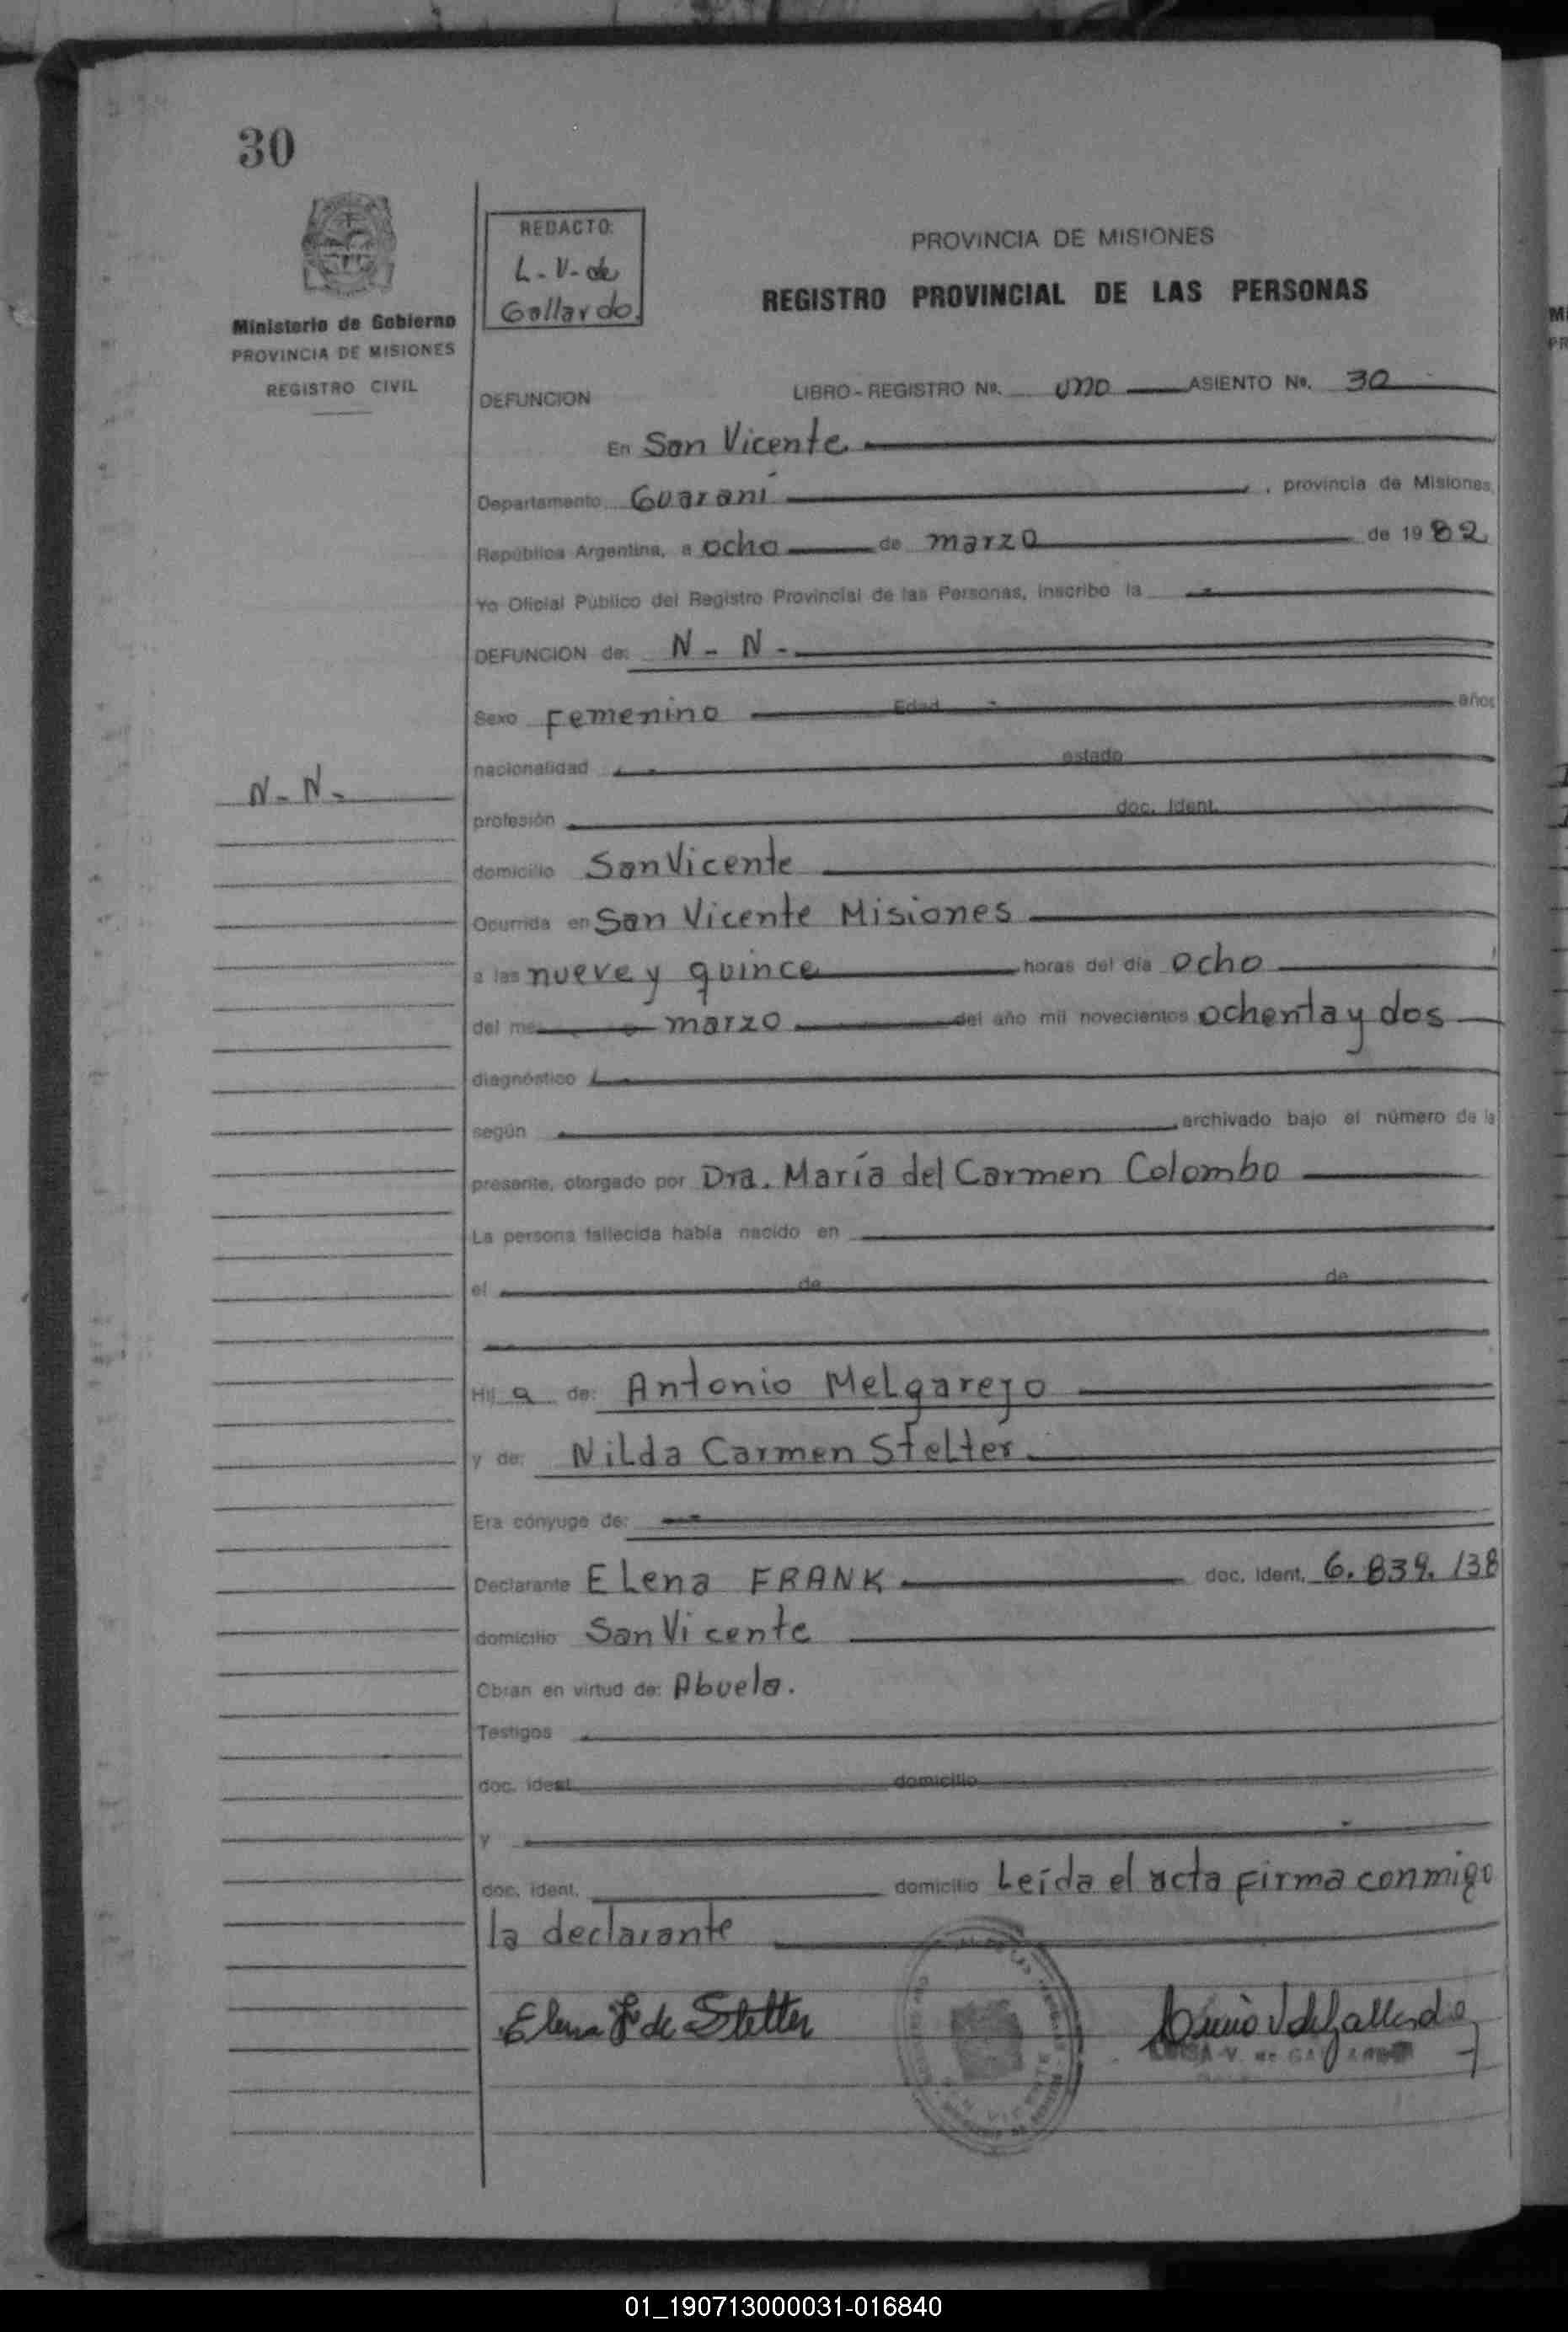 30
REDACTO:
L-V-de
Gallardo.
Ministerio de Gobierno
PROVINCIA DE MISIONES
REGISTRO CIVIL
PROVINCIA DE MISIONES
REGISTRO PROVINCIAL DE LAS PERSONAS
DEFUNCION LIBRO-REGISTRO Nº. uno ASIENTO Nº. 30
En San Vicente
Departamento Guaraní, provincia de Misiones,
República Argentina, a ocho de marzo de 1982
Yo Oficial Público del Registro Provincial de las Personas, inscribo la
DEFUNCION de: N - N -
Sexo Femenino Edad años
nacionalidad estado
N- N-
profesión doc. Ident.
domicilio San Vicente
Ocurrida en San Vicente Misiones
a las nueve y quince horas del día ocho
del mes marzo del año mil novecientos ochenta y dos
diagnóstico
según archivado bajo el número de la
presente, otorgado por Dra. María del Carmen Colombo
La persona fallecida había nacido en
el de de
Hij a de: Antonio Melgarejo
y de: Nilda Carmen Stelter
Era cónyuge de:
Declarante Elena FRANK doc. Ident. 6.839.138
domicilio San Vicente
Obran en virtud de: Abuela.
Testigos
doc. ident. domicilio
y
doc. ident. domicilio Leída el acta firma conmigo
la declarante
Elena F. de Stelter
V. de GALLARDO
01_190713000031-016840